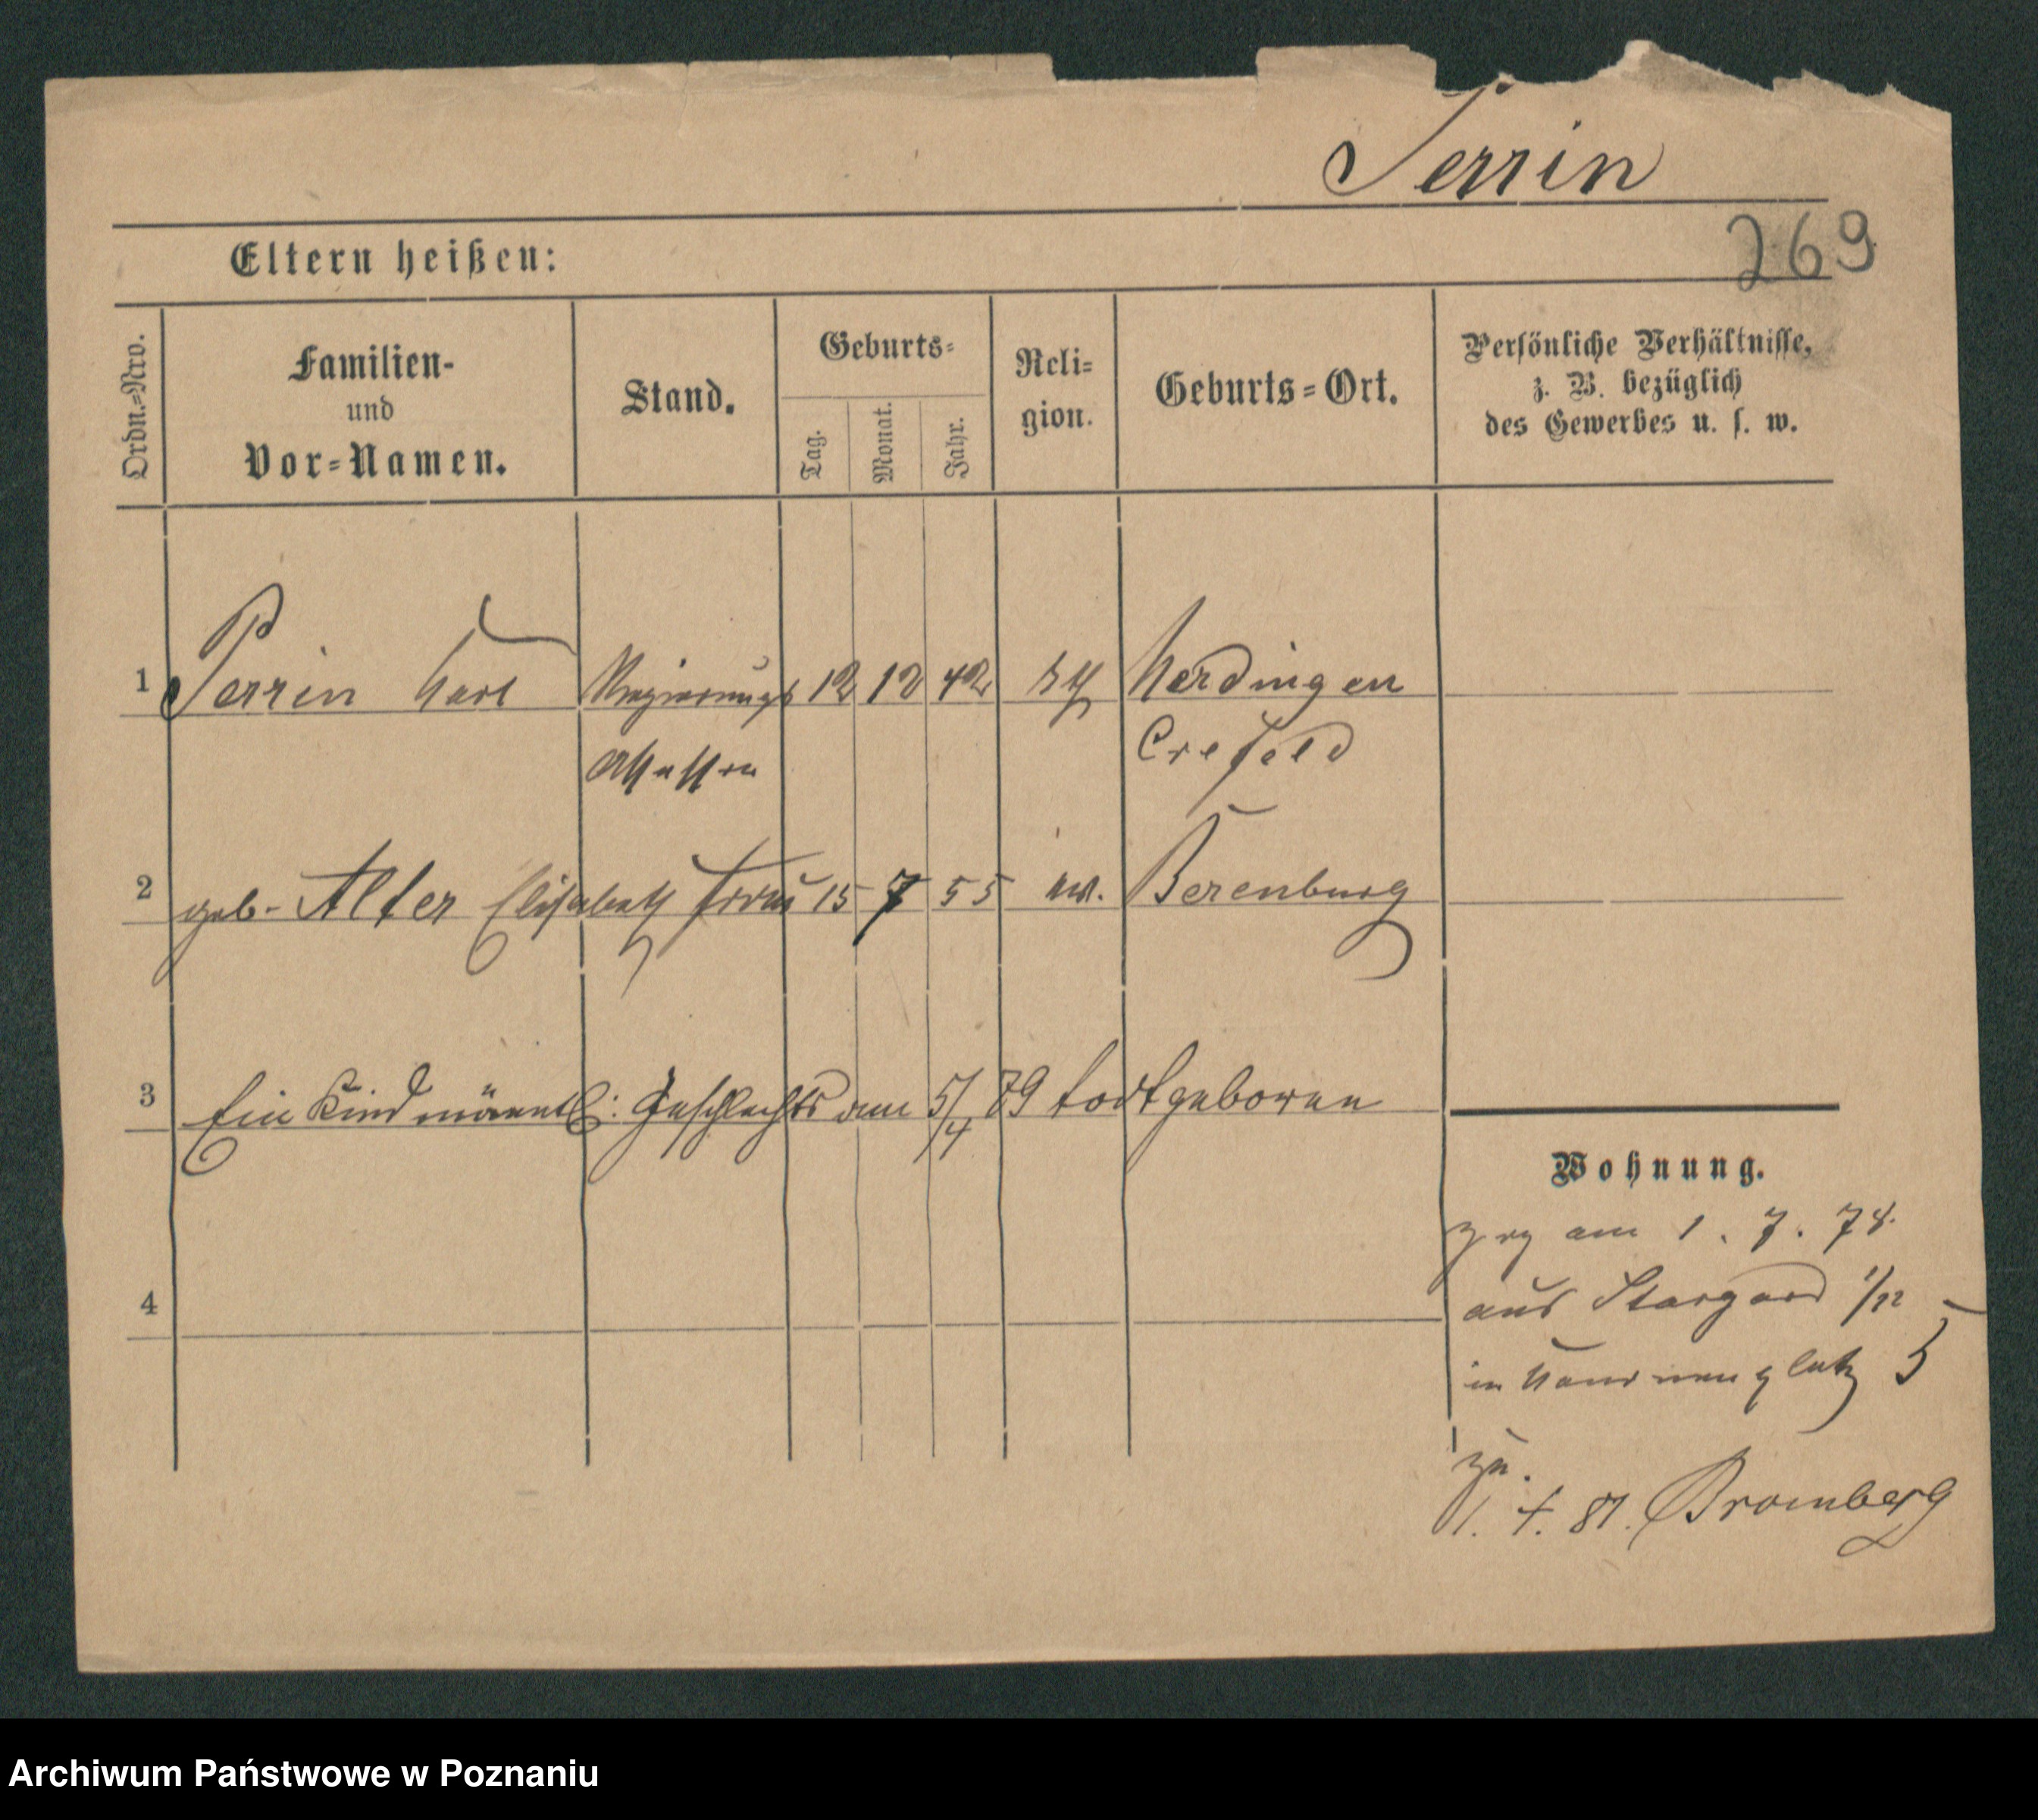 Perrin
269
Eltern heißen:
Ordn.-Nro.
Familien-
und
Vor-Namen.
Stand.
Geburts-
Tag.
Monat.
Jahr.
Reli-
gion.
Geburts-Ort.
Persönliche Verhältnisse,
z. B. bezüglich
des Gewerbes u. s. w.
1 Perrin Carl Regierungs 12 12 42 Uerdingen
Assessor Crefeld
2 geb. Alter Elisabeth Frau 15 7 55 ev. Berenburg
3 Ein Kind männl: Geschlechts am 5/4 79 todtgeboren
4
Wohnung.
zog am 1. 7. 78.
aus Stargard
in Kanonenplatz 5
1. 4. 81. Bromberg
Archiwum Państwowe w Poznaniu